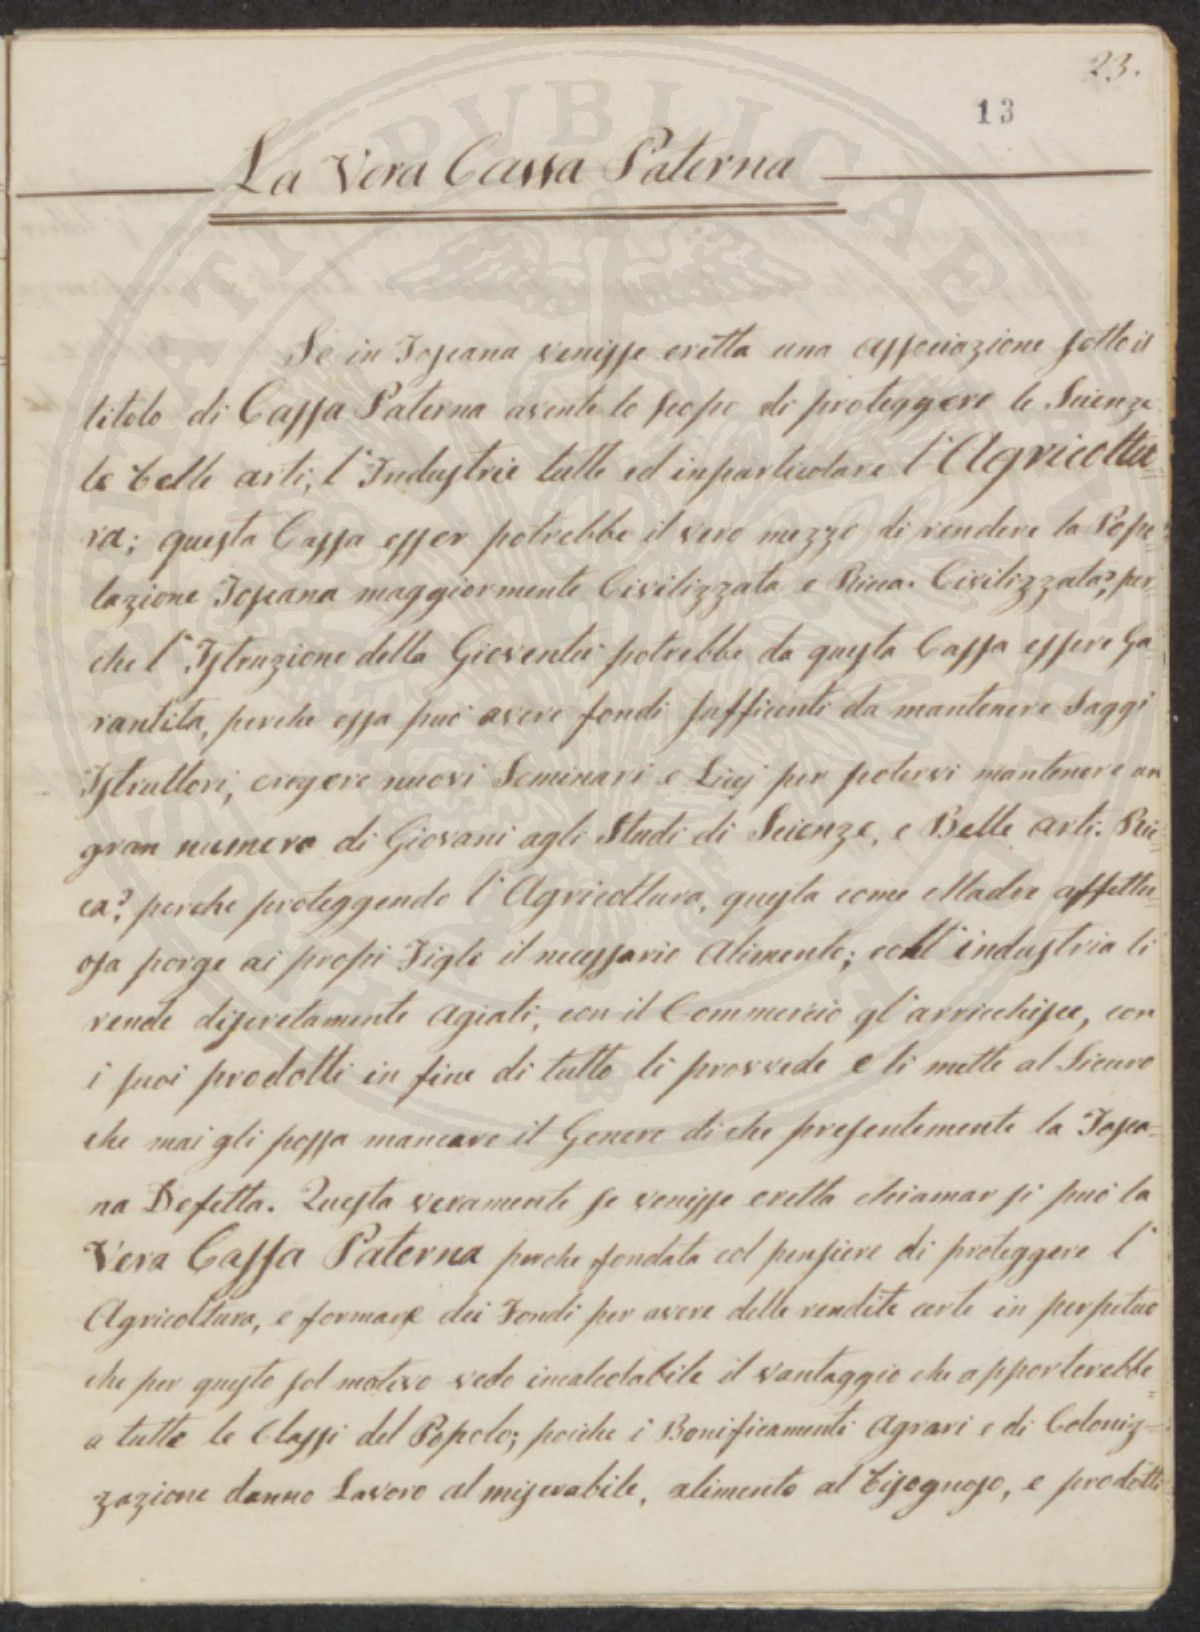 23.
13
La Vera Cassa Paterna
Se in Toscana venisse eretta una associazione sotto il
titolo di Cassa Paterna avente lo scopo di proteggere le Scienze
le belle arti, l'Industrie tutte ed inparticolare l'Agricoltu=
ra; questa Cassa esser potrebbe il vero mezzo di rendere la Popo=
lazione Toscana maggiormente Civilizzata e Ricca. Civilizzata?, per=
che l'Istruzione della Gioventù potrebbe da questa Cassa essere Ga=
rantita, perche essa può avere fondi sufficenti da mantenere Saggi
Istruttori, eregere nuovi Seminari e Licej per potervi mantenere un
gran numero di Giovani agli Studi di Scienze, e Belle arti. Ric=
ca?, perche proteggendo l'Agricoltura, questa come Madre affettu=
osa porge ai propi Figli il necessario Alimento; coll'industria li
rende discretamente agiati, con il Commercio gl'arricchisce, con
i suoi prodotti in fine di tutto li provvede e li mette al Sicuro
che mai gli possa mancare il Genere di che presentemente la Tosca=
na Defetta. Questa veramente se venisse eretta chiamar si può la
Vera Cassa Paterna perche fondata col pensiere di proteggere l'
Agricoltura, e formare dei Fondi per avere delle rendite certe in perpetuo
che per questo sol motivo vedo incalcolabile il vantaggio che apporterebbe
a tutte le Classi del Popolo; poiche i Bonificamenti agrari e di Coloniz=
zazione danno Lavoro al miserabile, alimento al bisognoso, e prodotti